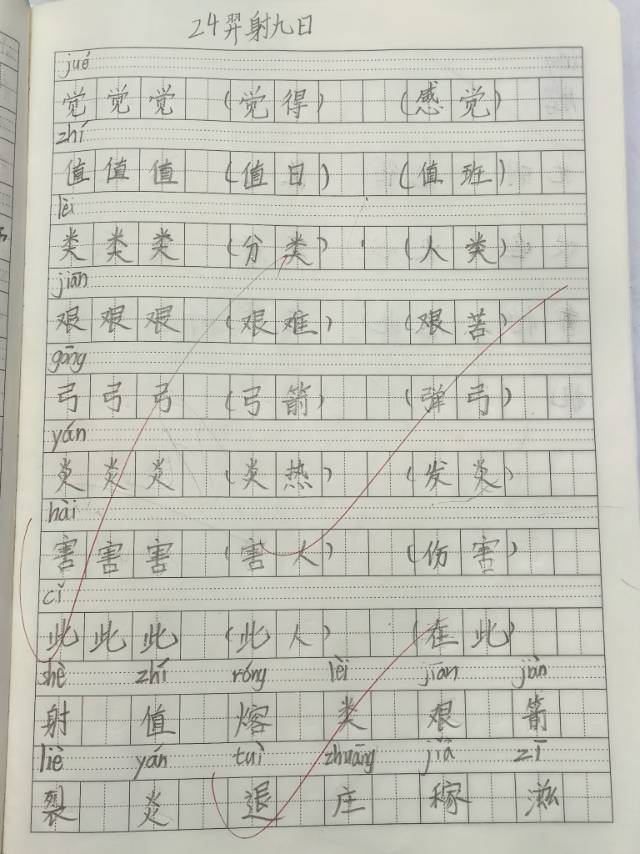 24羿射九日
jué
觉觉觉(觉得)(感觉)
zhí
值值值(值日)(值班)
lèi
类类类(分类)(人类)
jiān
艰艰艰(艰难)(艰苦)
gōng
弓弓弓(弓箭)(弹弓)
yán
炎炎炎(炎热)(发炎)
hài
害害害(害人)(伤害)
cǐ
此此此(此人)(在此)
shè zhí róng lèi jiān jiàn
射值熔类艰箭
liè yán tuì zhuāng jià zī
裂炎退庄稼滋